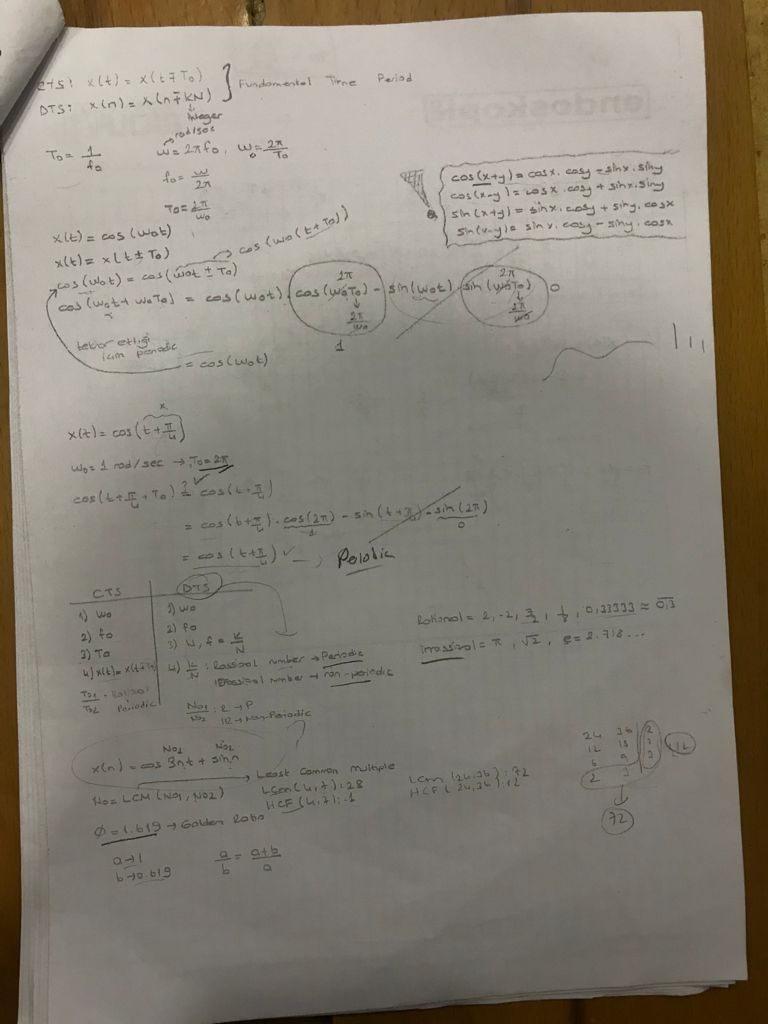 CTS: x(t) = x(t∓T₀) } Fundamental Time Period
DTS: x(n) = x(n∓kN)
integer
rad/sec
T₀ = 1/f₀ w = 2πf₀, w₀ = 2π/T₀
f₀ = w/2π
T₀ = 2π/w₀
cos(x+y) = cosx. cosy - sinx. siny
cos(x-y) = cosx. cosy + sinx. siny
sin(x+y) = sinx. cosy + siny. cosx
sin(x-y) = sinx. cosy - siny. cosx
x(t) = cos(w₀t)
x(t) = x(t ± T₀) cos(w₀(t±T₀))
cos(w₀t) = cos(w₀t ± T₀)
2π 2π
cos(w₀t + w₀T₀) = cos(w₀t). cos(w₀T₀) - sin(w₀t). sin(w₀T₀) 0
2π/w₀ 2π/w₀
1
tekrar ettiği
için periodic
= cos(w₀t)
x
x(t) = cos(t + π/4)
w₀ = 1 rad/sec → T₀ = 2π
cos(t + π/4 + T₀) ?= cos(t + π/4)
= cos(t + π/4). cos(2π) - sin(t + π/4). sin(2π)
1 0
= cos(t + π/4) ✓ → Peiodic
CTS DTS
1) w₀ 1) w₀
2) f₀ 2) f₀
3) T₀ 3) N, f = k/N
4) x(t) = x(t∓T₀) 4) k/N : Rassional number → Periodic
Irrassional number → non-periodic
T₀₁/T₀₂ = Rational Periodic
N₀₁/N₀₂ : R → P
IR → Non-Periodic
Rational = 2, -2, 3/2, 1/8, 0,33333 ≈ 0,3̅
Irrasional = π, √2, e = 2.718...
N₀₁ N₀₂
x(n) = cos 3πt + sin n
N₀ = LCM(N₀₁, N₀₂) → Least Common Multiple
LCM(4,7): 28
HCF(4,7): 1
LCM(24,36): 72
HCF(24,36): 12
24 36 | 2
12 18 | 2
6 9 | 3
2 3
12
72
Ø = 1.619 → Golden Ratio
a → 1 a/b = (a+b)/a
b → 0.619